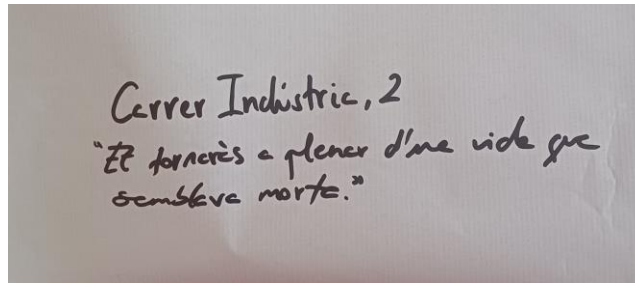 Carrer Indústria, 2
"Et tornaràs a plenar d'una vida que
semblava morta."